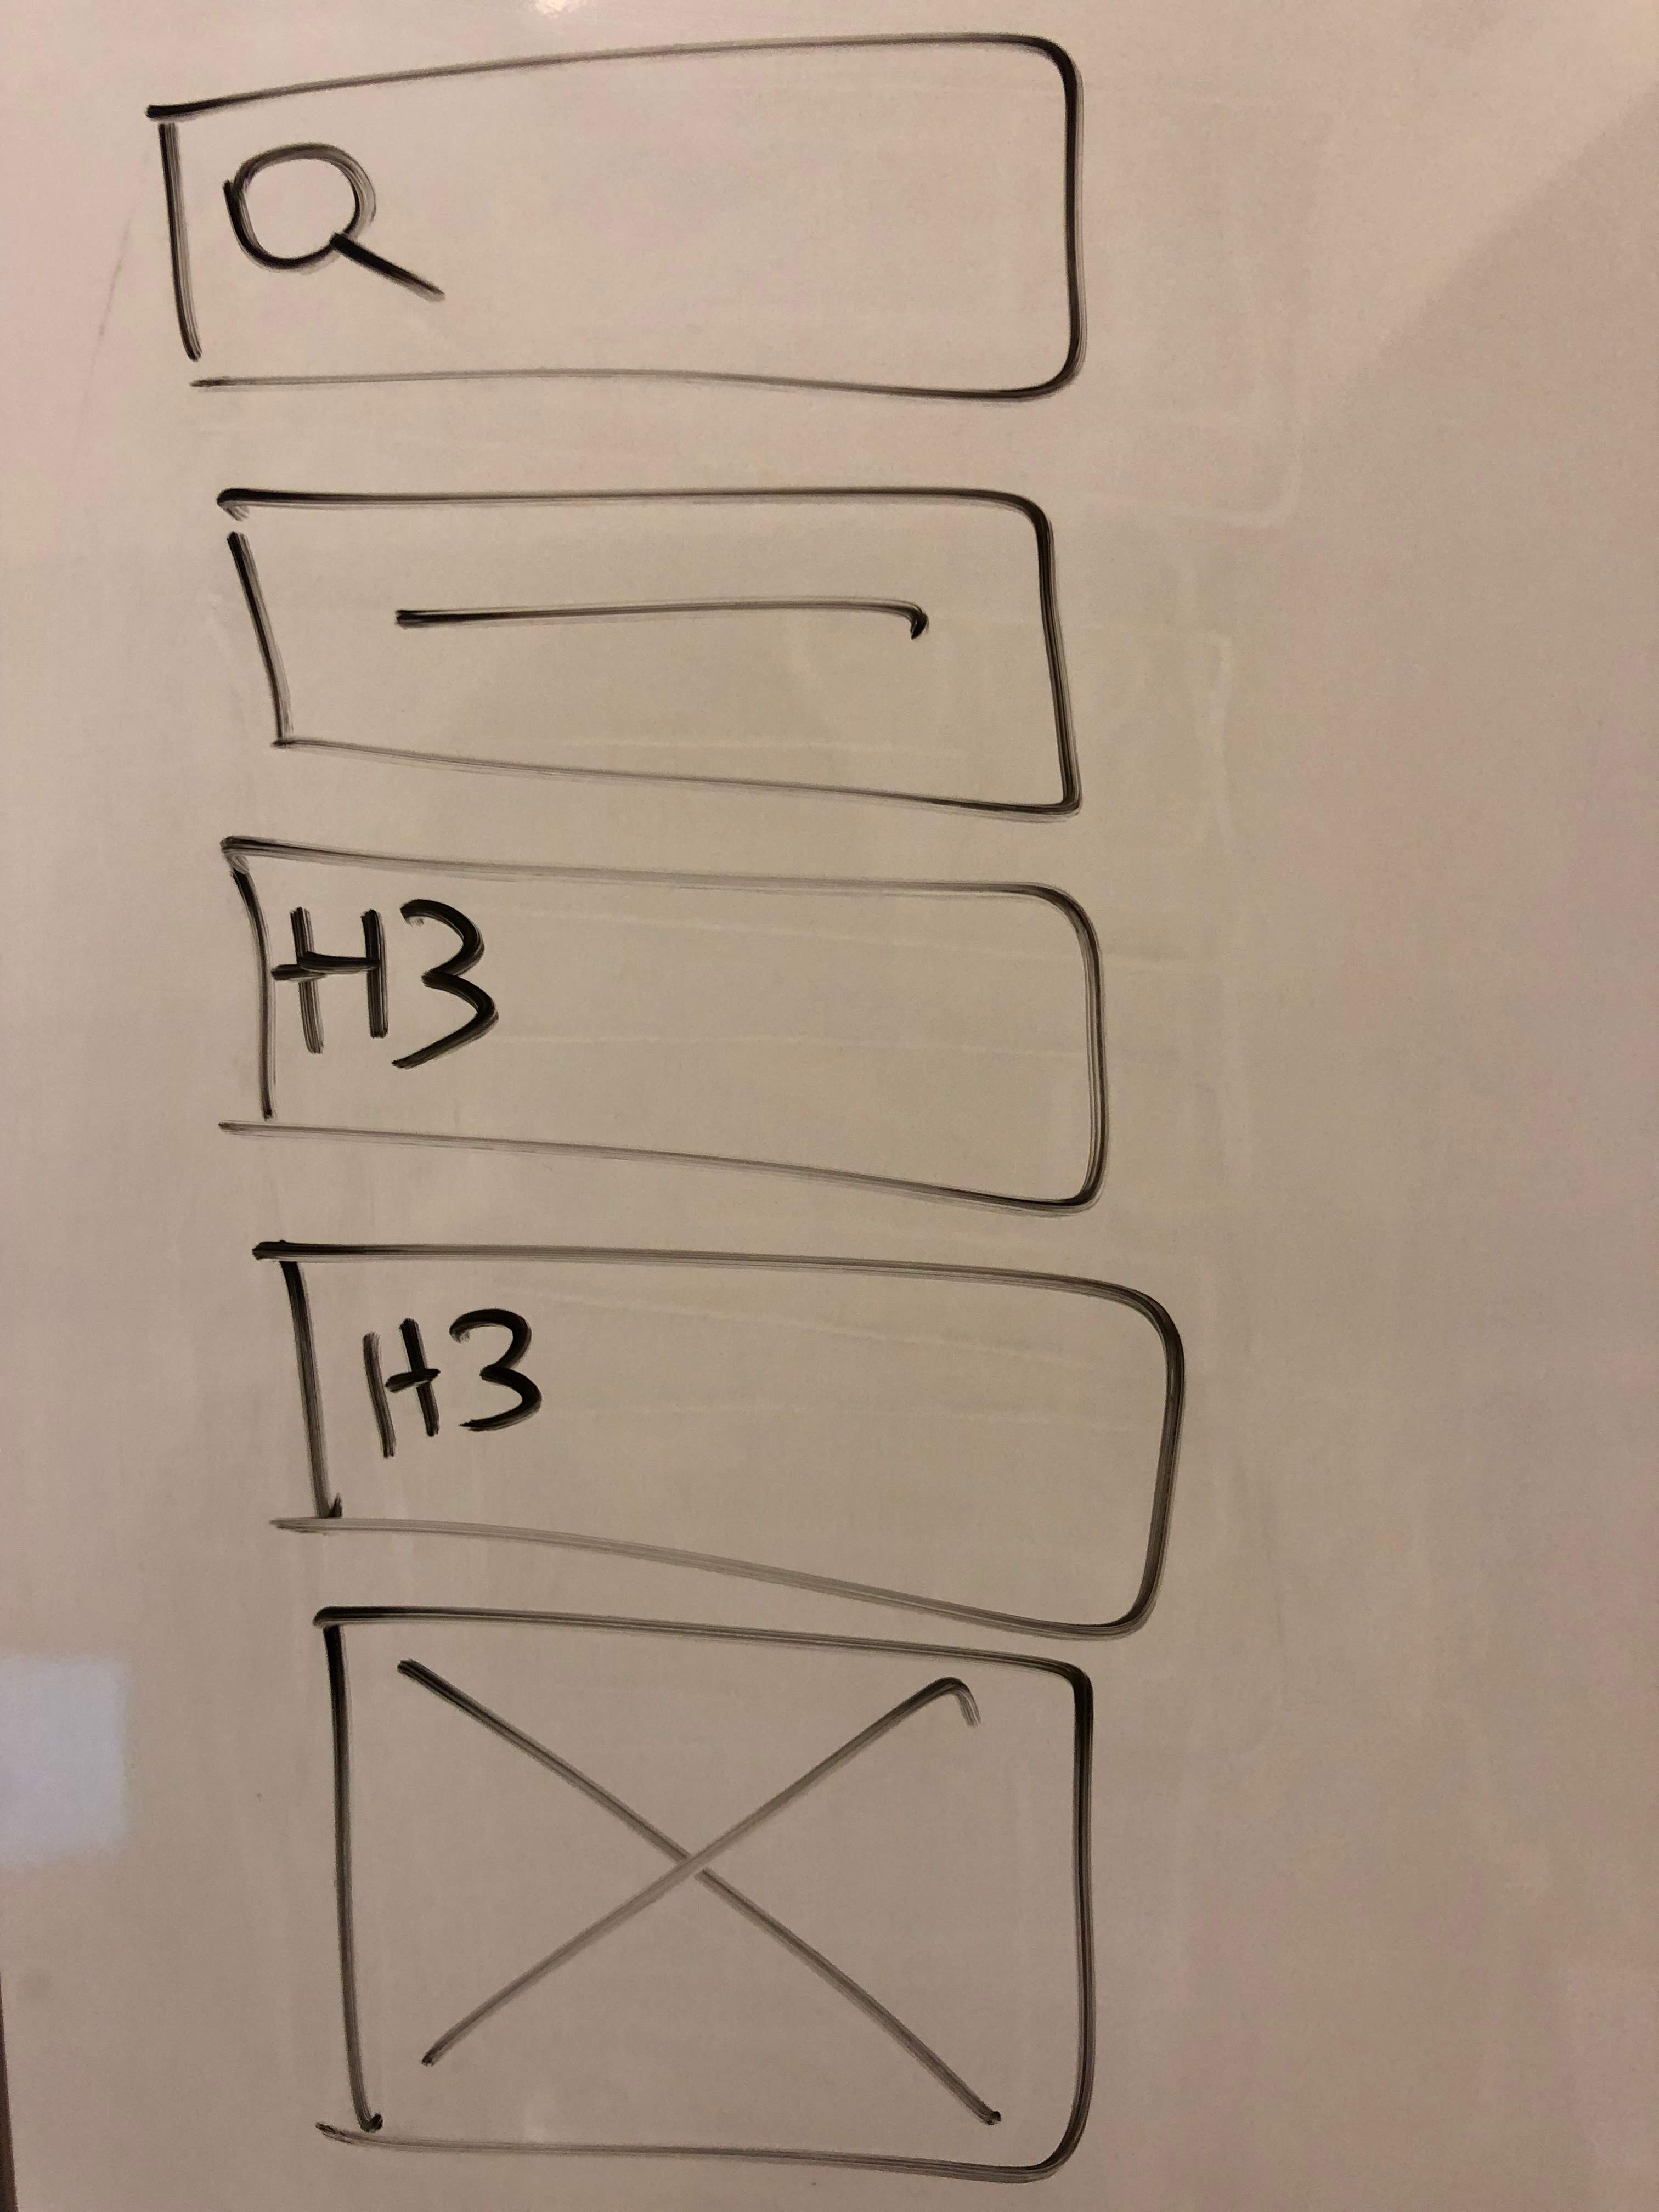 H3
H3